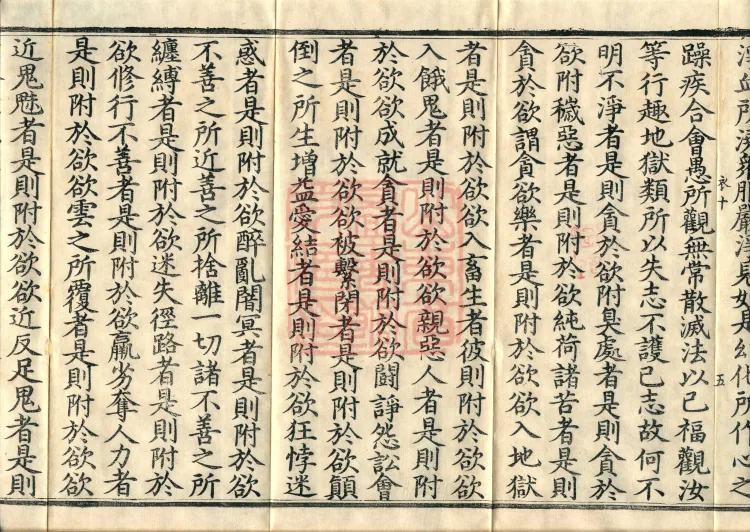 躁疾合會愚所觀無常散滅法以已福觀汝
等行趣地獄類所以失志不護已志故何不
明不淨者是則貪於欲附臭處者是則貪於
欲附穢惡者是則附於欲純荷諸苦者是則
貪於欲謂貪欲樂者是則附於欲欲入地獄
者是則附於欲欲入畜生者彼則附於欲欲
入餓鬼者是則附於欲欲親惡人者是則附
於欲欲成就貪者是則附於欲鬪諍怨訟會
者是則附於欲欲被繫閉者是則附於欲顛
倒之所生增益愛結者是則附於欲狂悖迷
惑者是則附於欲醉亂闇冥者是則附於欲
不善之所近善之所捨離一切諸不善之所
纏縛者是則附於欲迷失徑路者是則附於
欲修行不善者是則附於欲羸劣奪人力者
是則附於欲欲雲之所覆者是則附於欲欲
近鬼魅者是則附於欲欲近反足鬼者是則
衣十
五